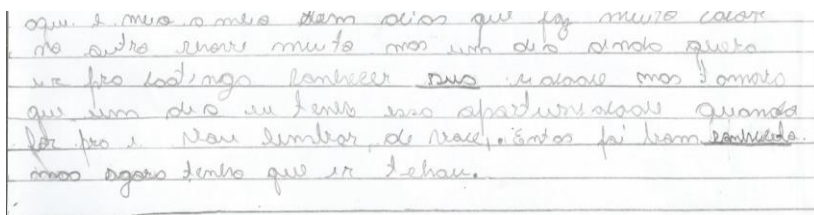 aqui é meio a meio tem dias que faz muito calor
no outro chove muito mas um dia ainda quero
ir pro conhecer sua cidade mas tomara
que um dia eu tenho essa oparturnidade quando
for pra i vou lembrar, de você,. Entos foi bom
mas agora tenho que ir tchau.